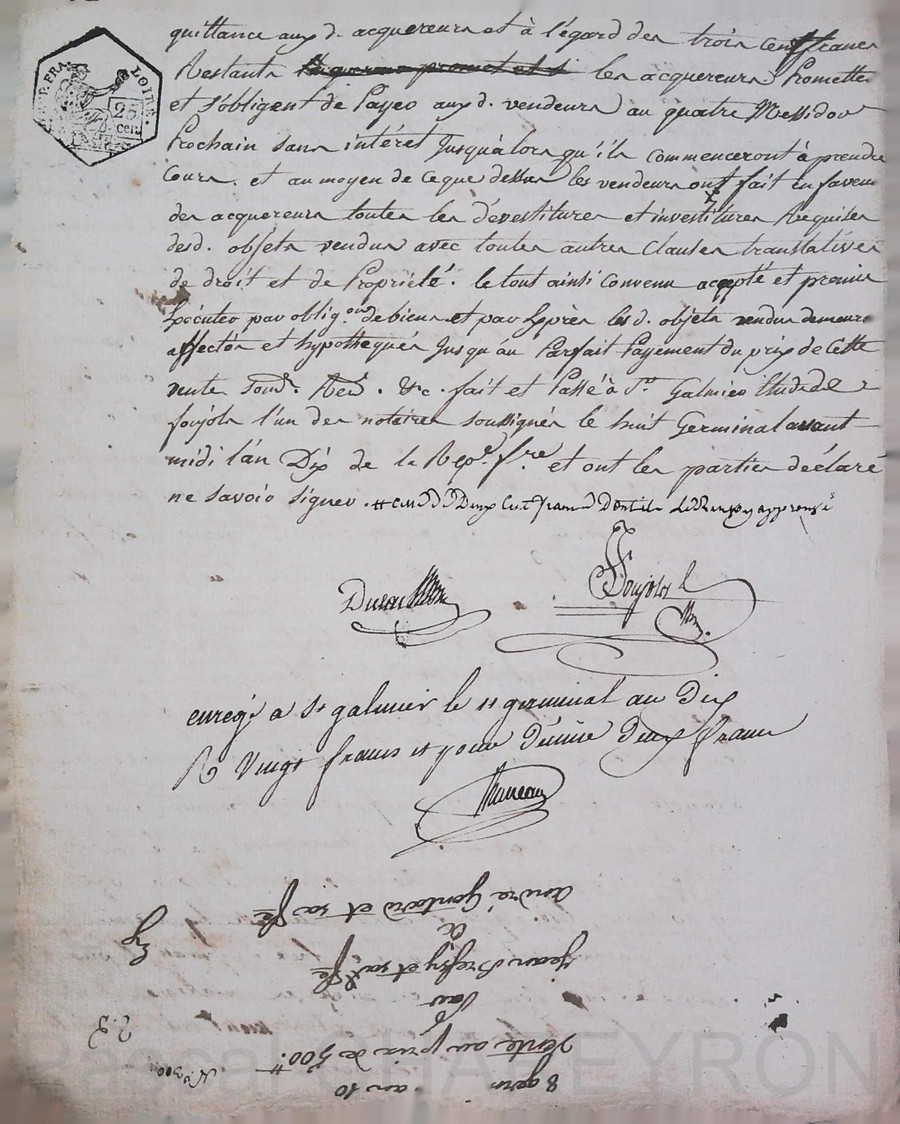 REP. FRA. LOIRE.
25 cen
quittance aux d. acquereurs et à l'égard des trois cent francs
Restants les acquereurs Promettent
et s'obligent de Payer aux d. vendeurs au quatre Messidor
Prochain sans intérêt Jusqu'alors qu'ils commenceront à prendre
Cours. et au moyen de ce que dessus les vendeurs ont fait en faveur
des acquereurs toutes les dévestitures et investitures Requises
desd. objets vendus avec toutes autres Clauses translatives
de droit et de Propriété. le tout ainsi Convenu accepté et promis
Exécuter par oblig.on de biens et par Exprès les d. objets vendus demeurent
affectés et hypothequés Jusqu'au Parfait Payement du prix de Cette
vente &c. fait et Passé à St Galmier Etude de
foujols l'un des notaires soussignés le huit Germinal avant
midi l'an Dix de la Rep.e f.re et ont les parties déclaré
ne savoir signer.
Foujols
enregé a St galmier le 11 germinal an Dix
R Vingt francs et pour Décime Deux francs
8 germ an 10
Vente au prix de 500.tt
Par
Jean et sa fe
a
andré Gontard et sa fe
Pascal CHAPEYRON